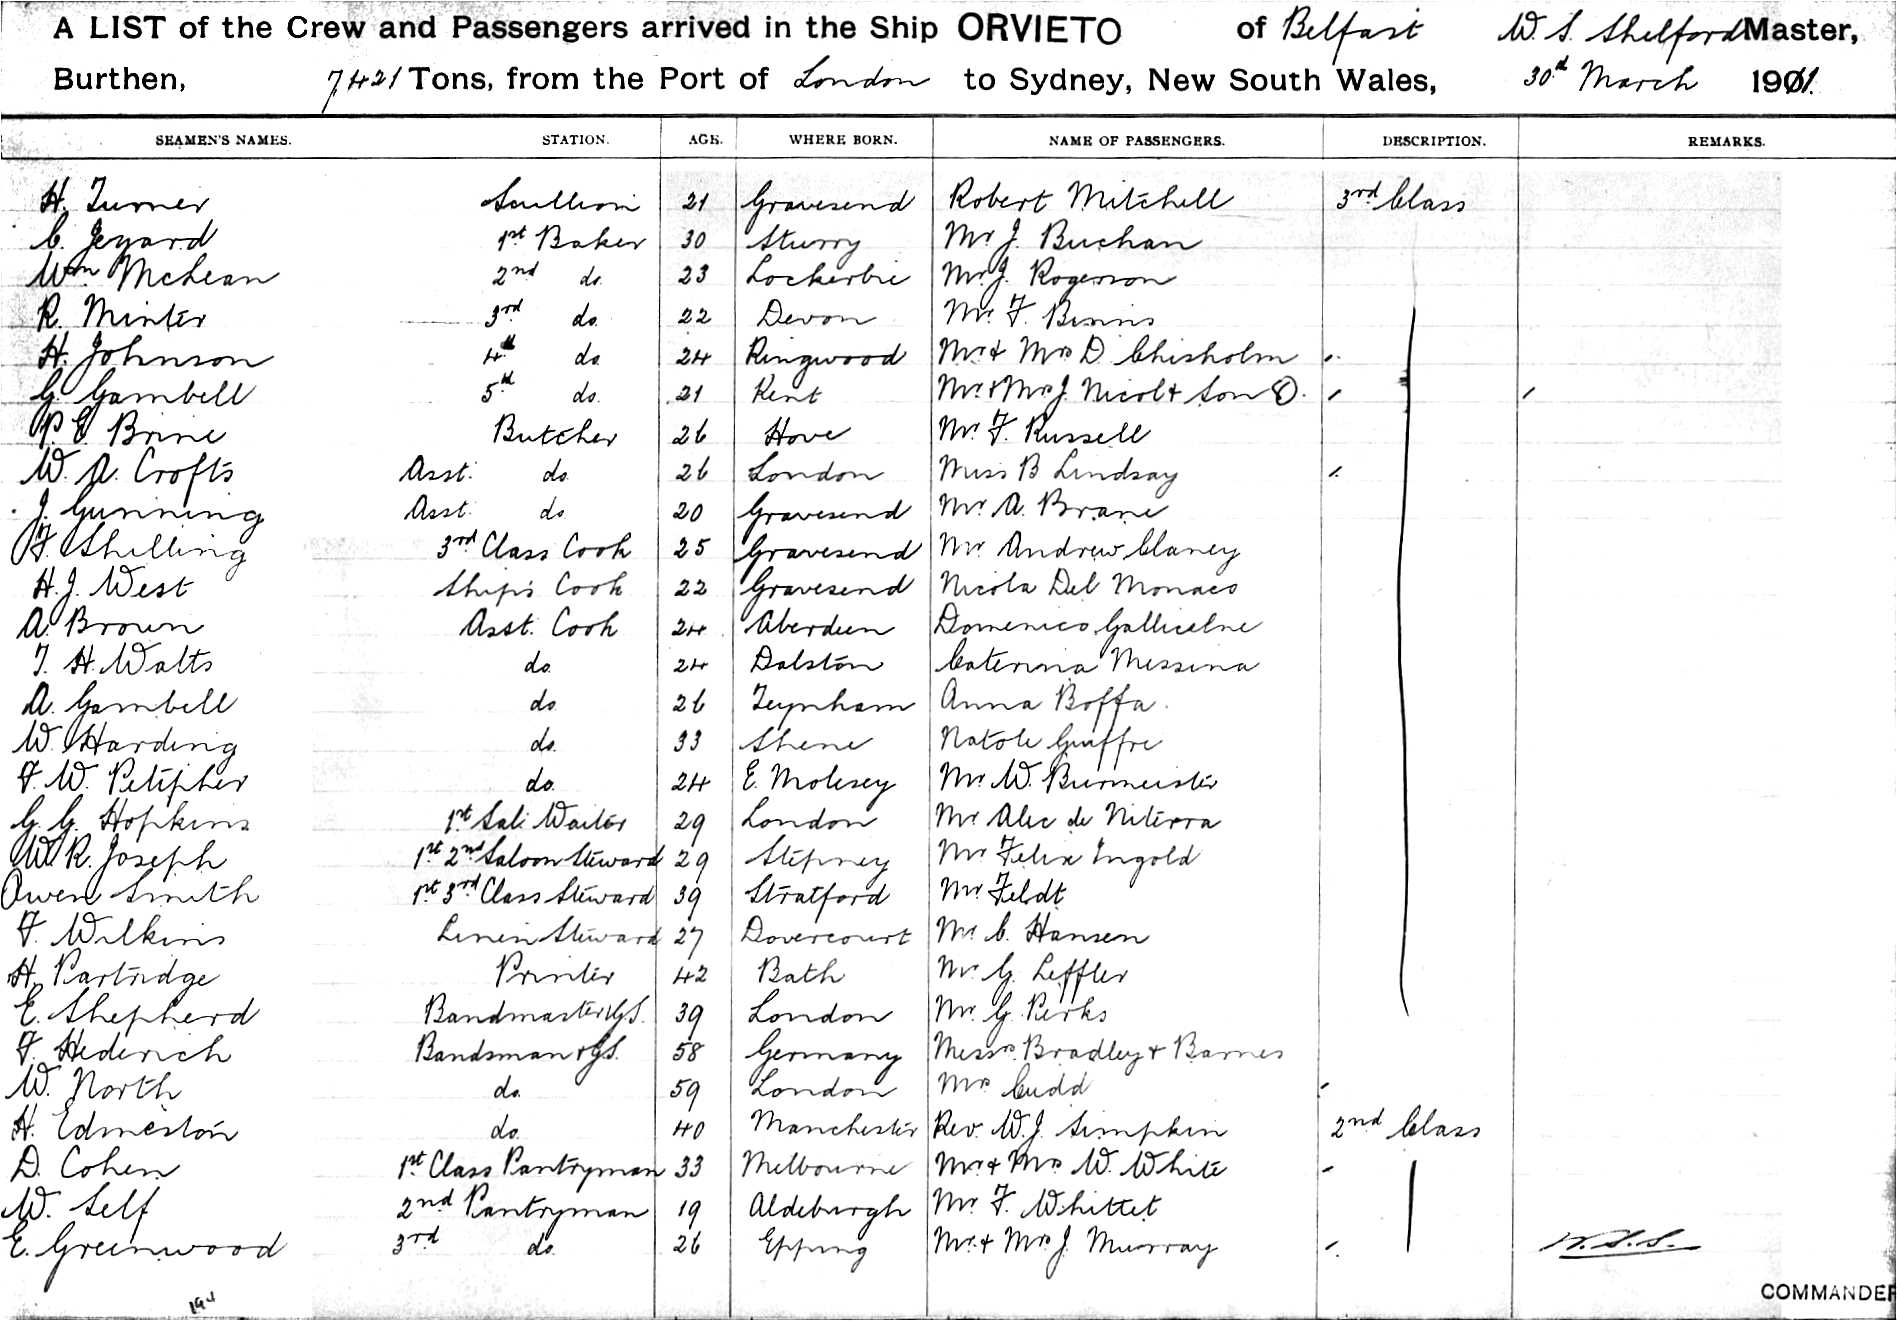 A LIST of the Crew and Passengers arrived in the Ship ORVIETO of Belfast W. S. Shelford Master,
Burthen, 7,421 Tons, from the Port of London to Sydney, New South Wales, 30th March 1911.
SEAMEN'S NAMES. STATION. AGE. WHERE BORN. NAME OF PASSENGERS. DESCRIPTION. REMARKS.
H. Turner Scullion 21 Gravesend Robert Mitchell 3rd Class
C. Jezard 1st Baker 30 Sturry Mr J. Buchan
Wm McLean 2nd do. 23 Lockerbie Mr. J. Rogerson
R. Minter 3rd do. 22 Devon Mr. F. Binns
H. Johnson 4th do. 24 Ringwood Mr. & Mrs D. Chisholm
G. Gambell 5th do. 21 Kent Mr. & Mrs J. Nicol & Son
P. E. Brine Butcher 26 Hove Mr. F. Russell
W. A. Crofts Asst. do. 26 London Miss B Lindsay
J. Gunning Asst. do 20 Gravesend Mr. A. Brane
F. Shilling 3rd Class Cook 25 Gravesend Mr. Andrew Clancy
H. J. West Ship's Cook 22 Gravesend Nicola Del Monaco
A. Brown Asst. Cook 24 Aberdeen Domenico
T. H. Watts do. 24 Dalston Caterina Messina
A. Gambell do. 26 Teynham Anna Boffa.
W. Harding do. 33 Shene Natole Giuffre
F. W. Petipher do. 24 E. Molesey Mr. W. Burmeister
G. G. Hopkins 1st Sal. Waiter 29 London Mr Alec de Niterra
W. R. Joseph 1st 2nd Saloon Steward 29 Stepney Mr Felix Ingold
Owen Smith 1st 3rd Class Steward 39 Stratford Mr. Feldt
F. Wilkins Linen Steward 27 Dovercourt Mr. C. Hansen
H. Partridge Printer 42 Bath Mr. G. Leffler
E. Shepherd Bandmaster & G.S. 39 London Mr. G. Perks
F. Hederich Bandsman & G.S. 58 Germany Messrs. Bradley & Barnes
W. North do. 59 London Mrs Cudd
H. Edmeston do. 40 Manchester Rev. W. J. Simpkin 2nd Class
D. Cohen 1st Class Pantryman 33 Melbourne Mr. & Mrs W. White
W. Self 2nd Pantryman 19 Aldeburgh Mr. F. Whittet
E. Greenwood 3rd do. 26 Epping Mr. & Mrs J. Murray W.S.S.
COMMANDER
194